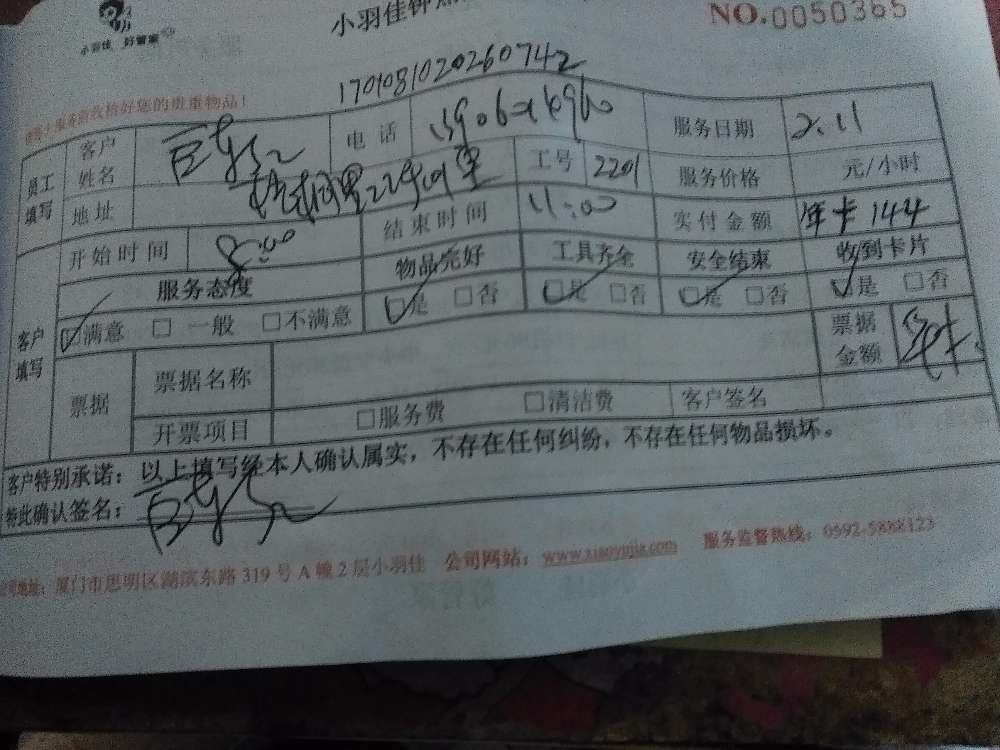 小羽佳 好管家
小羽佳钟点
NO.0050365
170108102026074 2
员工填写
客户姓名
电话
服务日期 2.11
地址
工号 2201
服务价格 元/小时
开始时间 8:00
结束时间 11:00
实付金额 年卡144
客户填写
服务态度 物品完好 工具齐全 安全结束 收到卡片
☑满意 □一般 □不满意 ☑是 □否 ☑是 □否 ☑是 □否 ☑是 □否
票据 票据名称
票据金额
开票项目 □服务费 □清洁费 客户签名
客户特别承诺：以上填写经本人确认属实，不存在任何纠纷，不存在任何物品损坏。
特此确认签名：
公司地址：厦门市思明区湖滨东路319号A幢2层小羽佳 公司网站：www.xiaoyujia.com 服务监督热线：0592-5888123